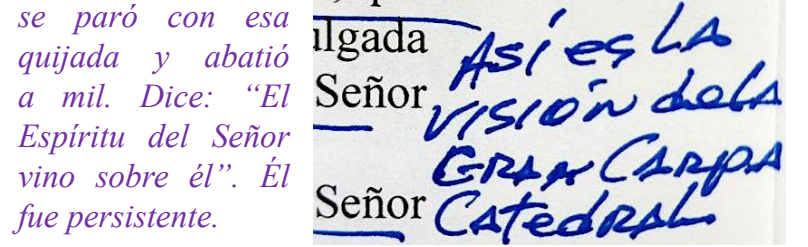 se paró con esa
quijada y abatió
a mil. Dice: “El
Espíritu del Señor
vino sobre él”. Él
fue persistente.
ulgada
Señor
Señor
Así es LA
VISIÓN de la
GRAN CARPA
CATedRAL